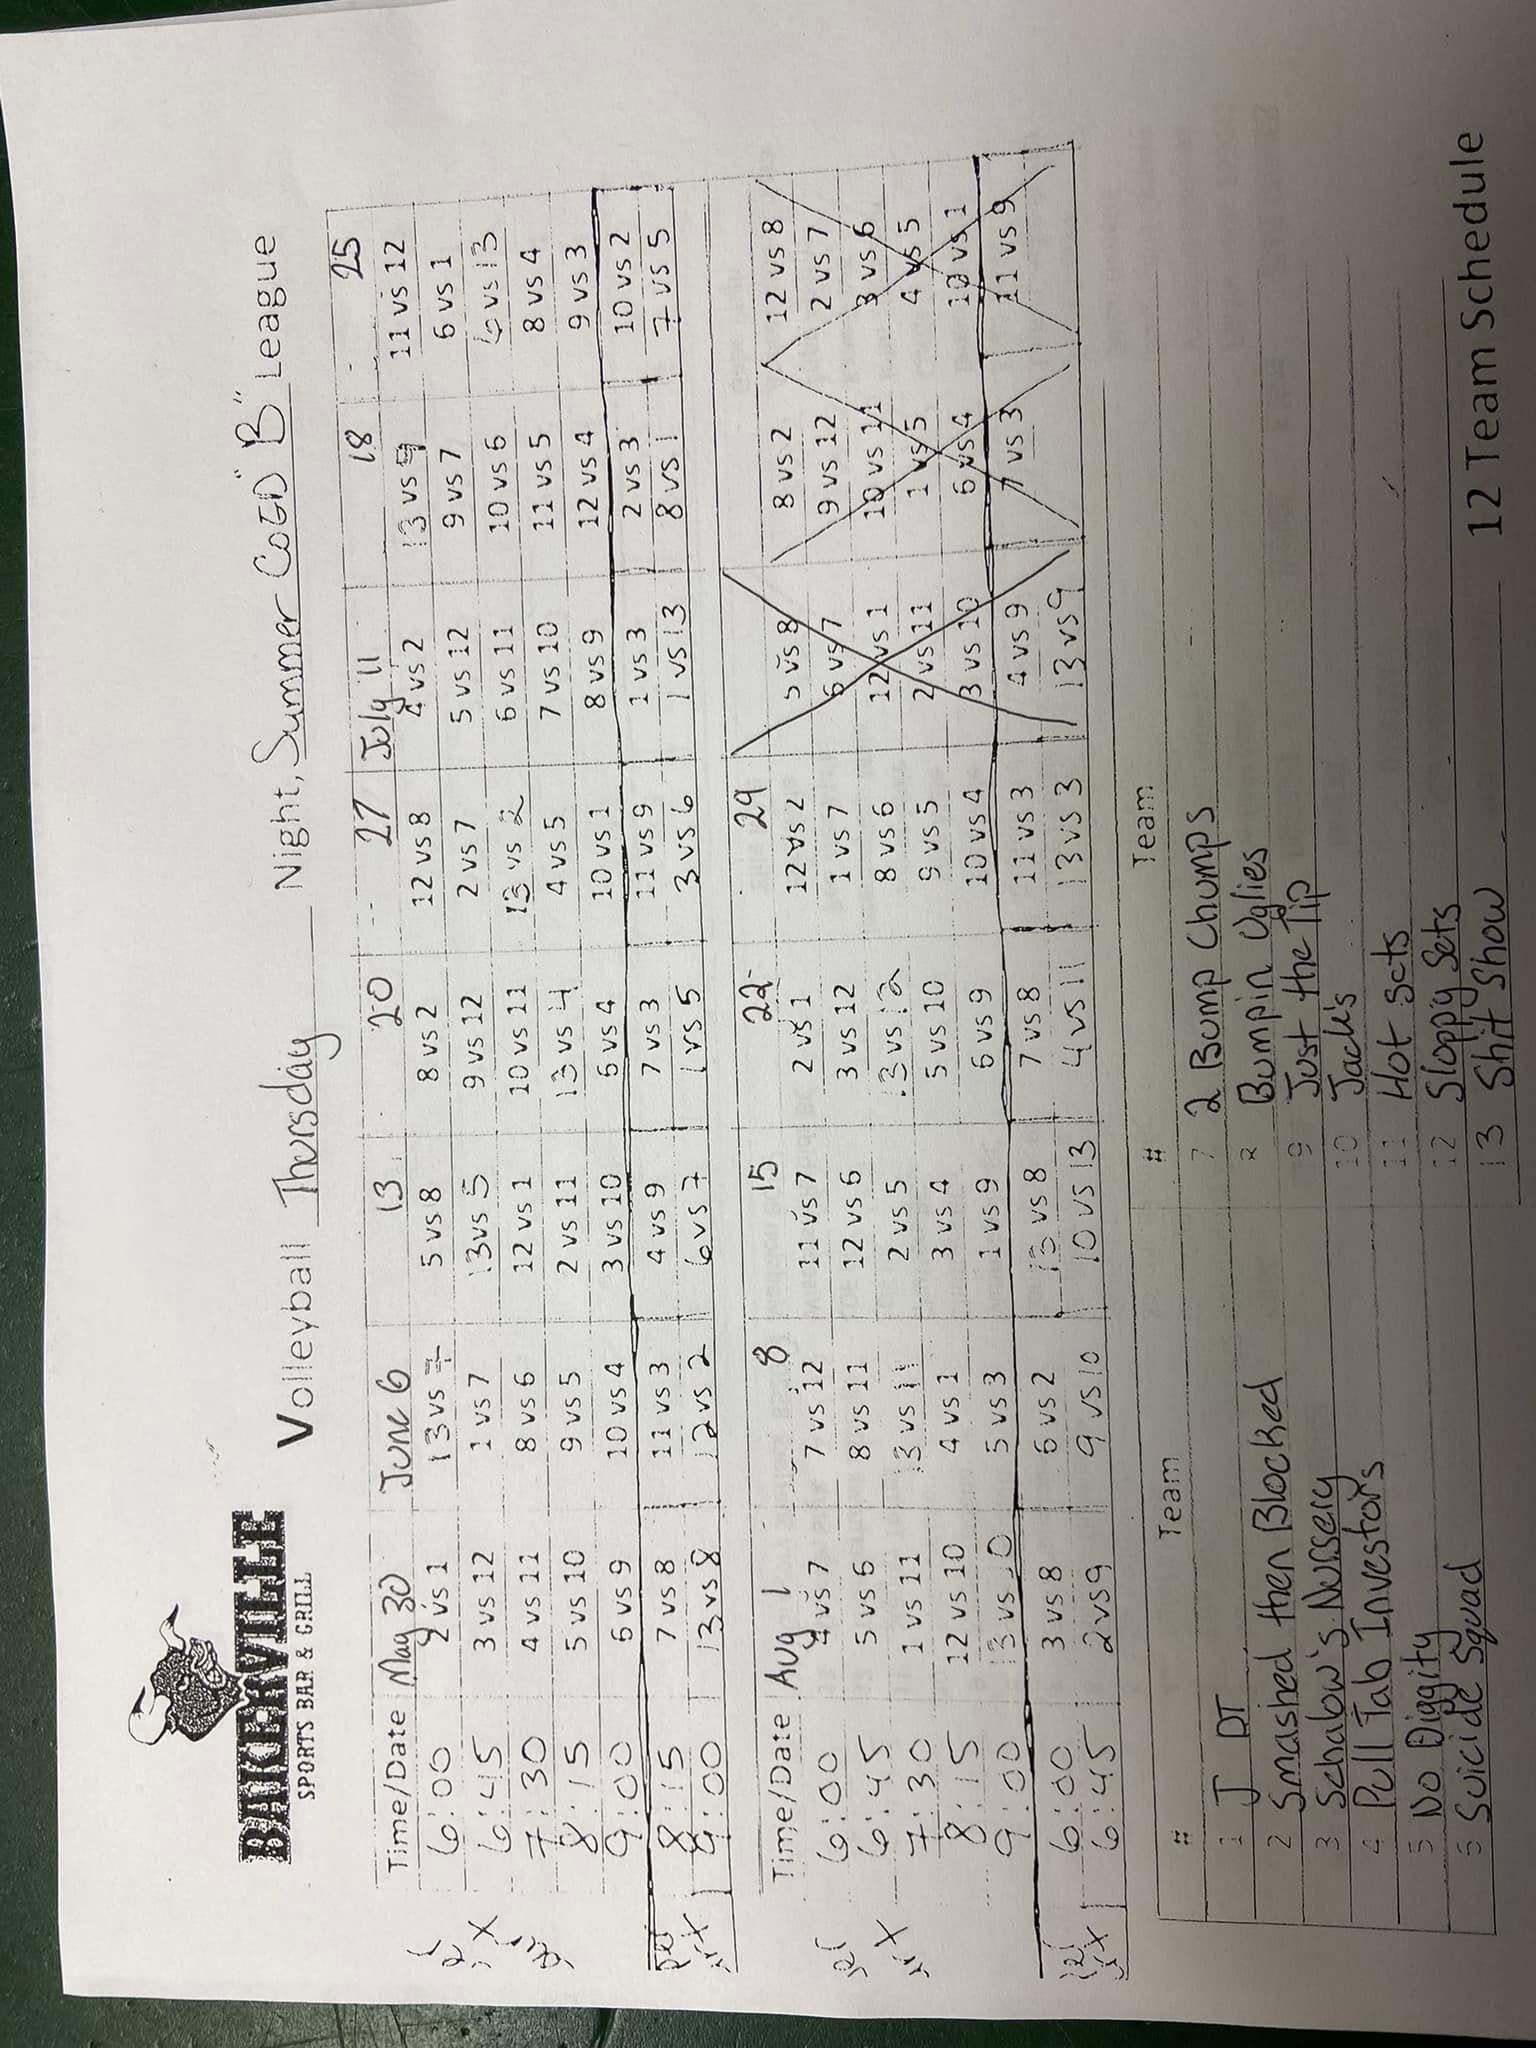 BAKERVILLE
SPORTS BAR & GRILL
Volleyball Thursday Night, Summer Coed "B" League
Time/Date May 30 June 6 13 20 27 July 11 18 25
6:00 2 vs 1 13 vs 7 5 vs 8 8 vs 2 12 vs 8 4 vs 2 13 vs 9 11 vs 12
6:45 3 vs 12 1 vs 7 13 vs 5 9 vs 12 2 vs 7 5 vs 12 9 vs 7 6 vs 1
7:30 4 vs 11 8 vs 6 12 vs 1 10 vs 11 13 vs 2 6 vs 11 10 vs 6 6 vs 13
8:15 5 vs 10 9 vs 5 2 vs 11 13 vs 4 4 vs 5 7 vs 10 11 vs 5 8 vs 4
9:00 6 vs 9 10 vs 4 3 vs 10 6 vs 4 10 vs 1 8 vs 9 12 vs 4 9 vs 3
8:15 7 vs 8 11 vs 3 4 vs 9 7 vs 3 11 vs 9 1 vs 3 2 vs 3 10 vs 2
9:00 13 vs 8 12 vs 2 6 vs 7 1 vs 5 3 vs 6 1 vs 13 8 vs 1 7 vs 5
Time/Date Aug 1 8 15 22 29
6:00 4 vs 7 7 vs 12 11 vs 7 2 vs 1 12 vs 2 5 vs 8 8 vs 2 12 vs 8
6:45 5 vs 6 8 vs 11 12 vs 6 3 vs 12 1 vs 7 6 vs 7 9 vs 12 2 vs 7
7:30 1 vs 11 13 vs 11 2 vs 5 13 vs 12 8 vs 6 12 vs 1 10 vs 11 3 vs 6
8:15 12 vs 10 4 vs 1 3 vs 4 5 vs 10 9 vs 5 2 vs 11 1 vs 5 4 vs 5
9:00 13 vs 5 vs 3 1 vs 9 6 vs 9 10 vs 4 3 vs 10 6 vs 4 10 vs 1
6:00 3 vs 8 6 vs 2 13 vs 8 7 vs 8 11 vs 3 4 vs 9 7 vs 3 11 vs 9
6:45 2 vs 9 9 vs 10 10 vs 13 4 vs 11 13 vs 3 13 vs 9
# Team # Team
1 J DT 7 2 Bump Chumps
2 Smashed then Blocked 8 Bumpin Uglies
3 Schalow's Nursery 9 Just the Tip
4 Pull Tab Investors 10 Jack's
5 No Diggity 11 Hot Sets
6 Suicide Squad 12 Sloppy Sets
13 Shit Show
12 Team Schedule